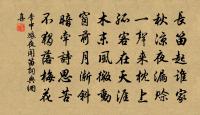 長笛起誰家
秋涼夜漏賒
一聲來枕上
孤客在天涯
木末風微動
窗前月漸斜
暗牽詩思苦
不獨落梅花
李中旅夜聞笛詞典網
集